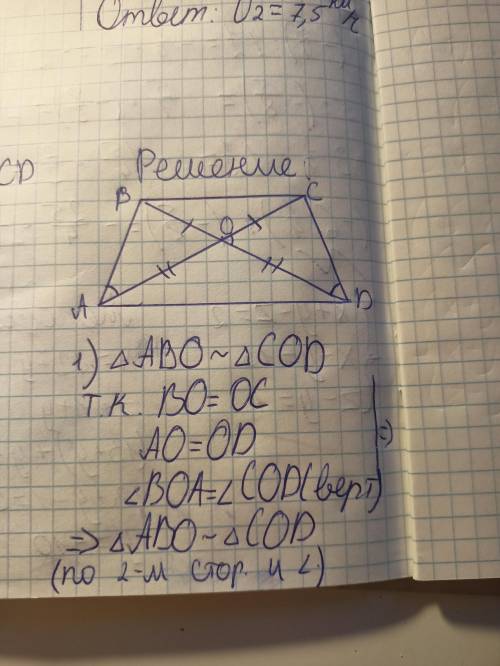 Ответ: U2 = 7,5 км/ч
CD
Решение:
B C
O
A D
1) △ABO ~ △COD
т.к. BO = OC
AO = OD
∠BOA = ∠COD (верт) | =>
=> △ABO ~ △COD
(по 2-м стор. и ∠)